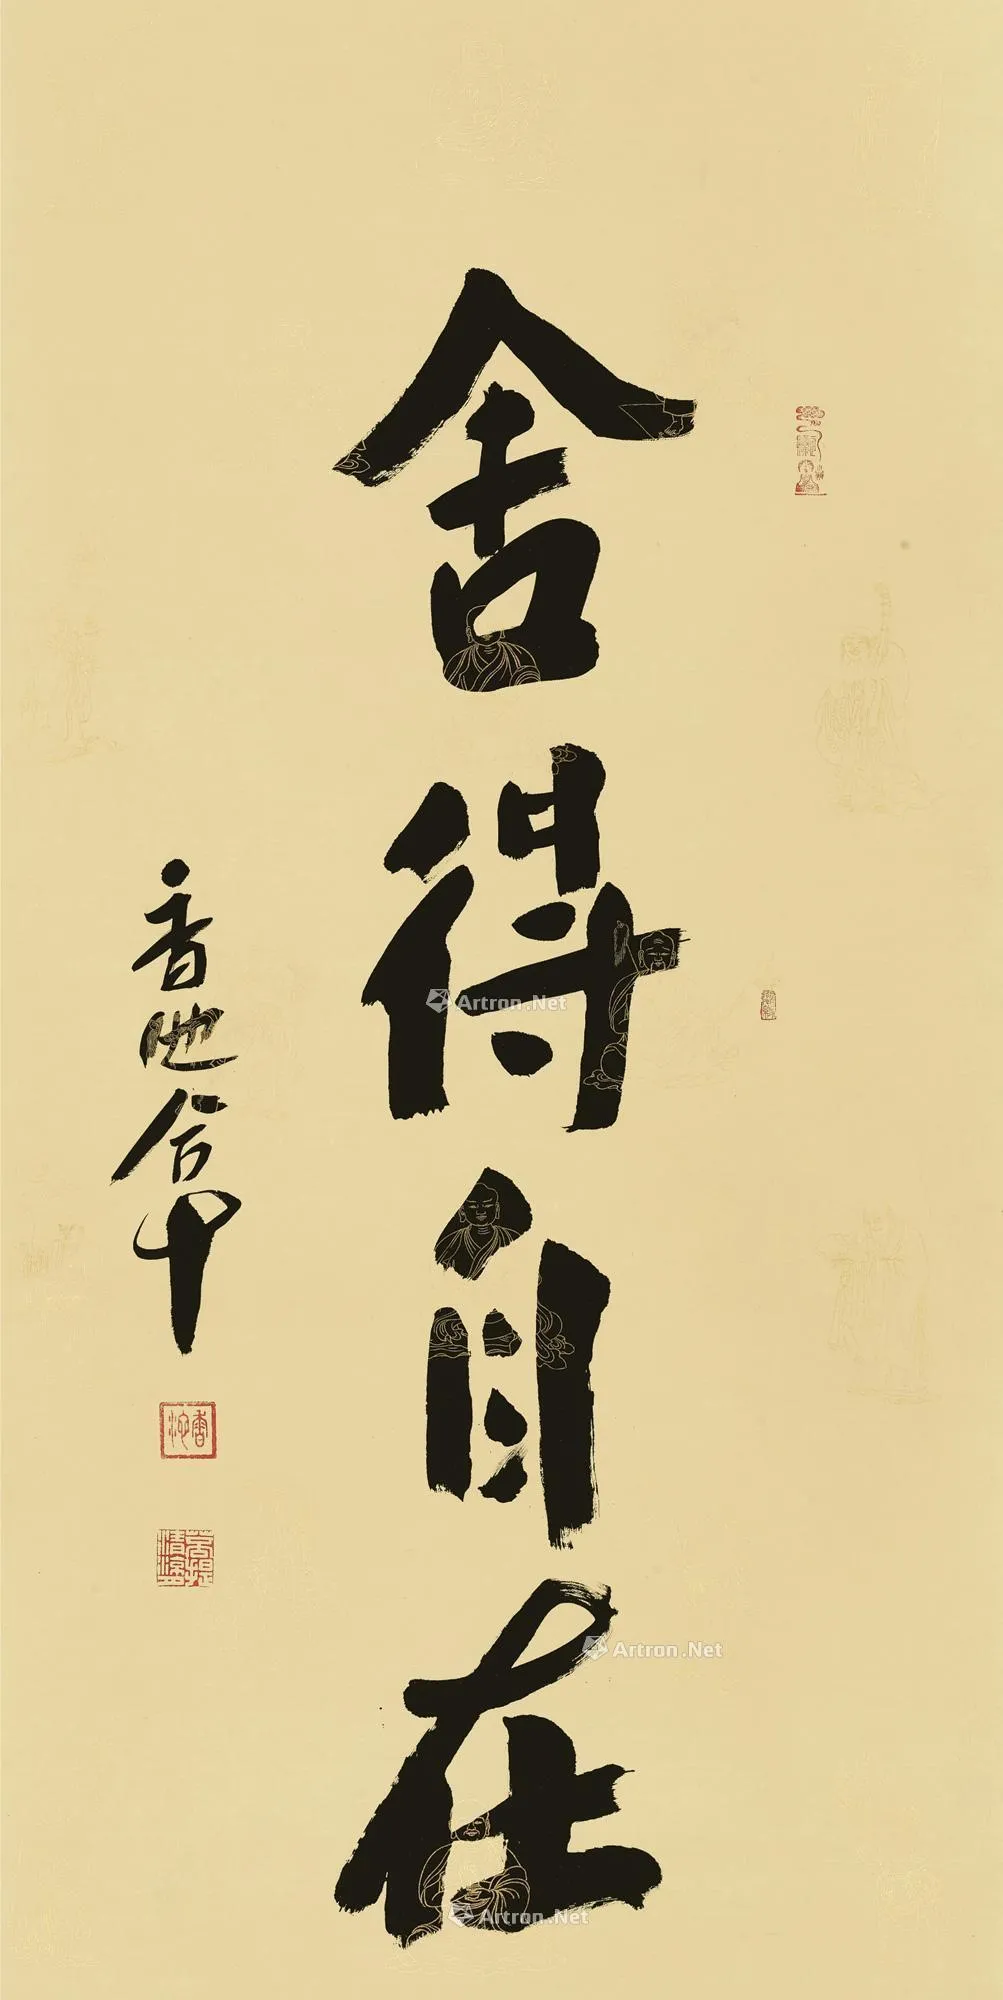 舍得自在
香池合十
香池
菩提清凉
Artron.Net
Artron.Net
Artron.Net